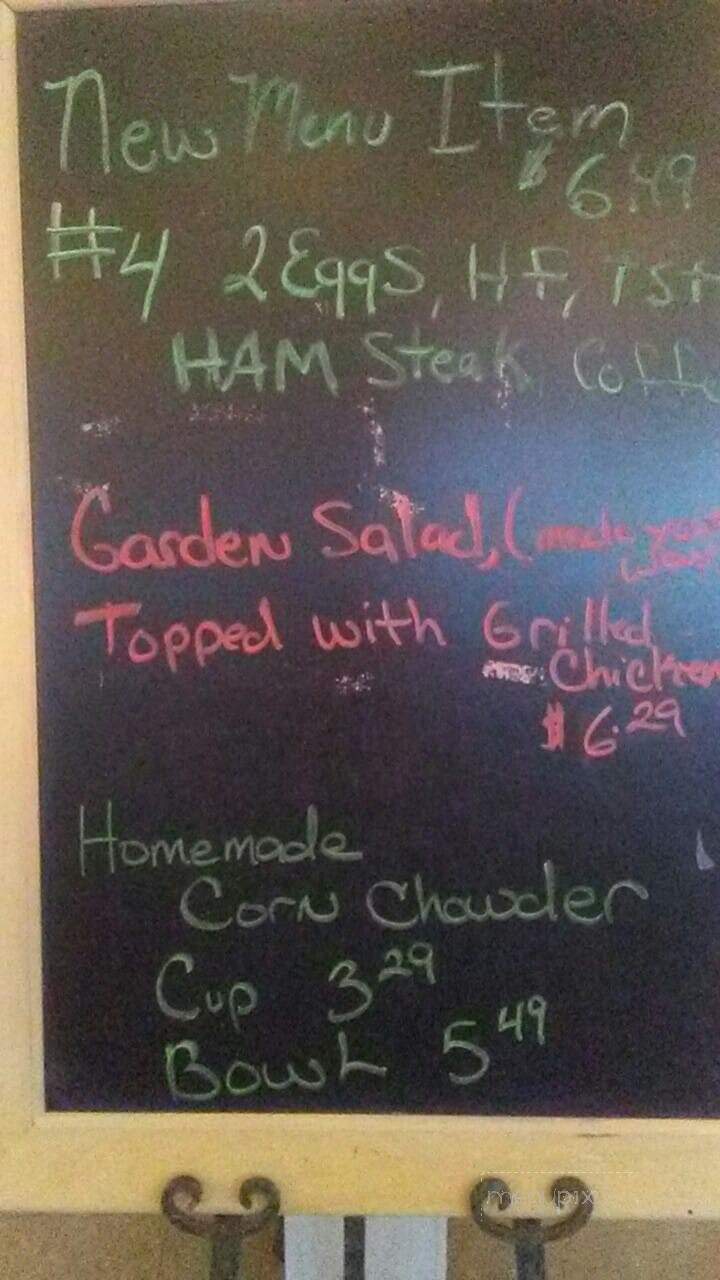 New Menu Item
$6.49
#4 2 Eggs, HF, Tst
HAM Steak, Coffe
Garden Salad, (made your
way)
Topped with Grilled
Chicken
$6.29
Homemade
Corn Chowder
Cup 3 29
Bowl 5 49
menupix